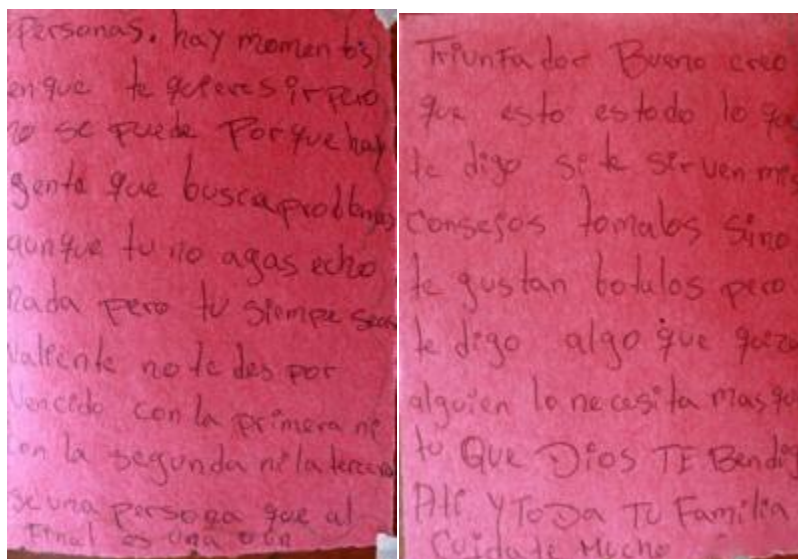 personas. hay momentos
en que te quieres ir pero
no se puede Porque hay
gente que busca problemas
aunque tu no agas echo
nada pero tu siempe seas
valiente no te des por
vencido con la primera ni
con la segunda ni la tercera
se una persona que al
Final es una
Triunfador Bueno creo
que esto es todo lo que
te digo si te sirven mis
consejos tomalos sino
te gustan botalos pero
te digo algo que quiza
alguien lo necesita mas que
tu QUE DIOS TE Bendiga
Ati Y TODA TU Familia
Cuidate Mucho